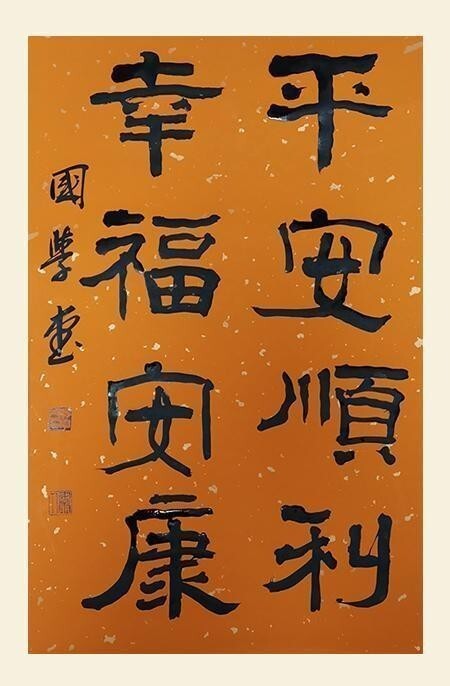 平安順利
幸福安康
國學堂